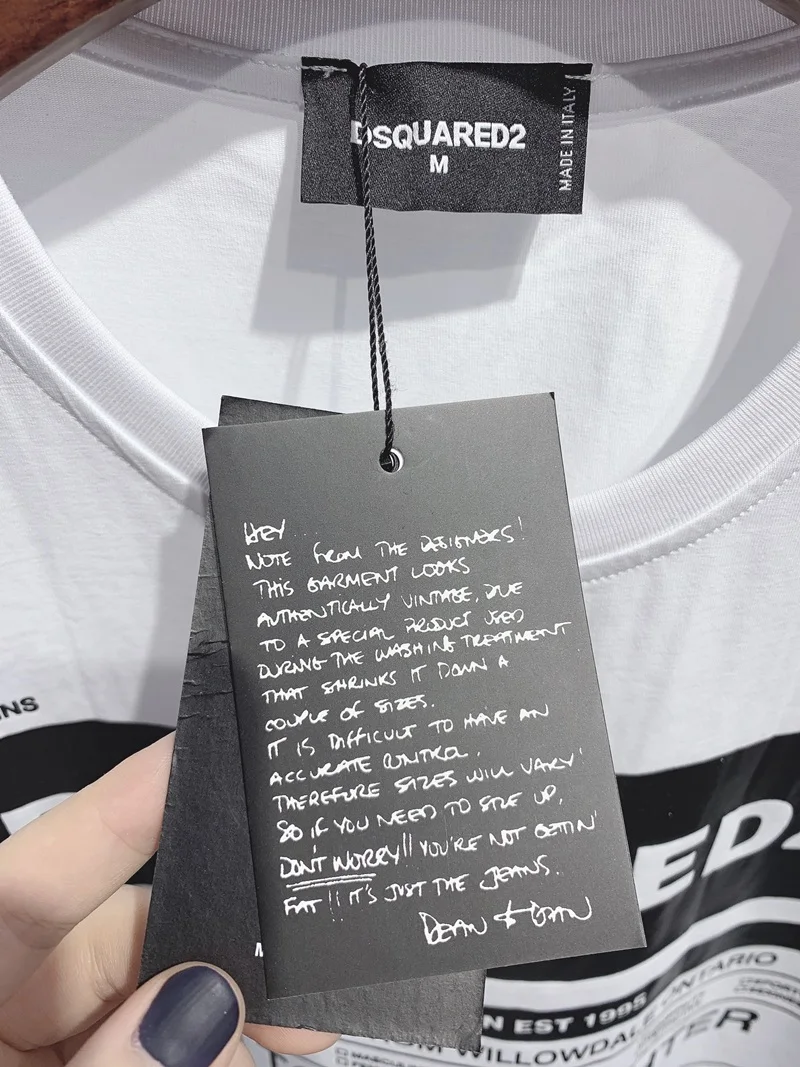 DSQUARED2
M
MADE IN ITALY
HEY
NOTE FROM THE DESIGNERS!
THIS GARMENT LOOKS
AUTHENTICALLY VINTAGE, DUE
TO A SPECIAL PRODUCT USED
DURING THE WASHING TREATMENT
THAT SHRINKS IT DOWN A
COUPLE OF SIZES.
IT IS DIFFICULT TO HAVE AN
ACCURATE CONTROL.
THEREFORE SIZES WILL VARY!
SO IF YOU NEED TO SIZE UP,
DON'T WORRY!! YOU'RE NOT GETTIN'
FAT!! IT'S JUST THE JEANS.
DEAN & DAN
INS
ED2
N EST 1995
ONTARIO
OM WILLOWDALE